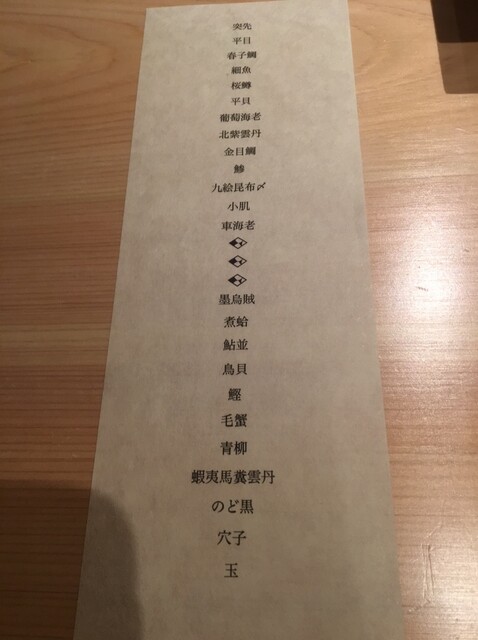 突先
平目
春子鯛
細魚
桜鱒
平貝
葡萄海老
北紫雲丹
金目鯛
鯵
九絵昆布〆
小肌
車海老
墨烏賊
煮蛤
鮎並
鳥貝
鰹
毛蟹
青柳
蝦夷馬糞雲丹
のど黒
穴子
玉